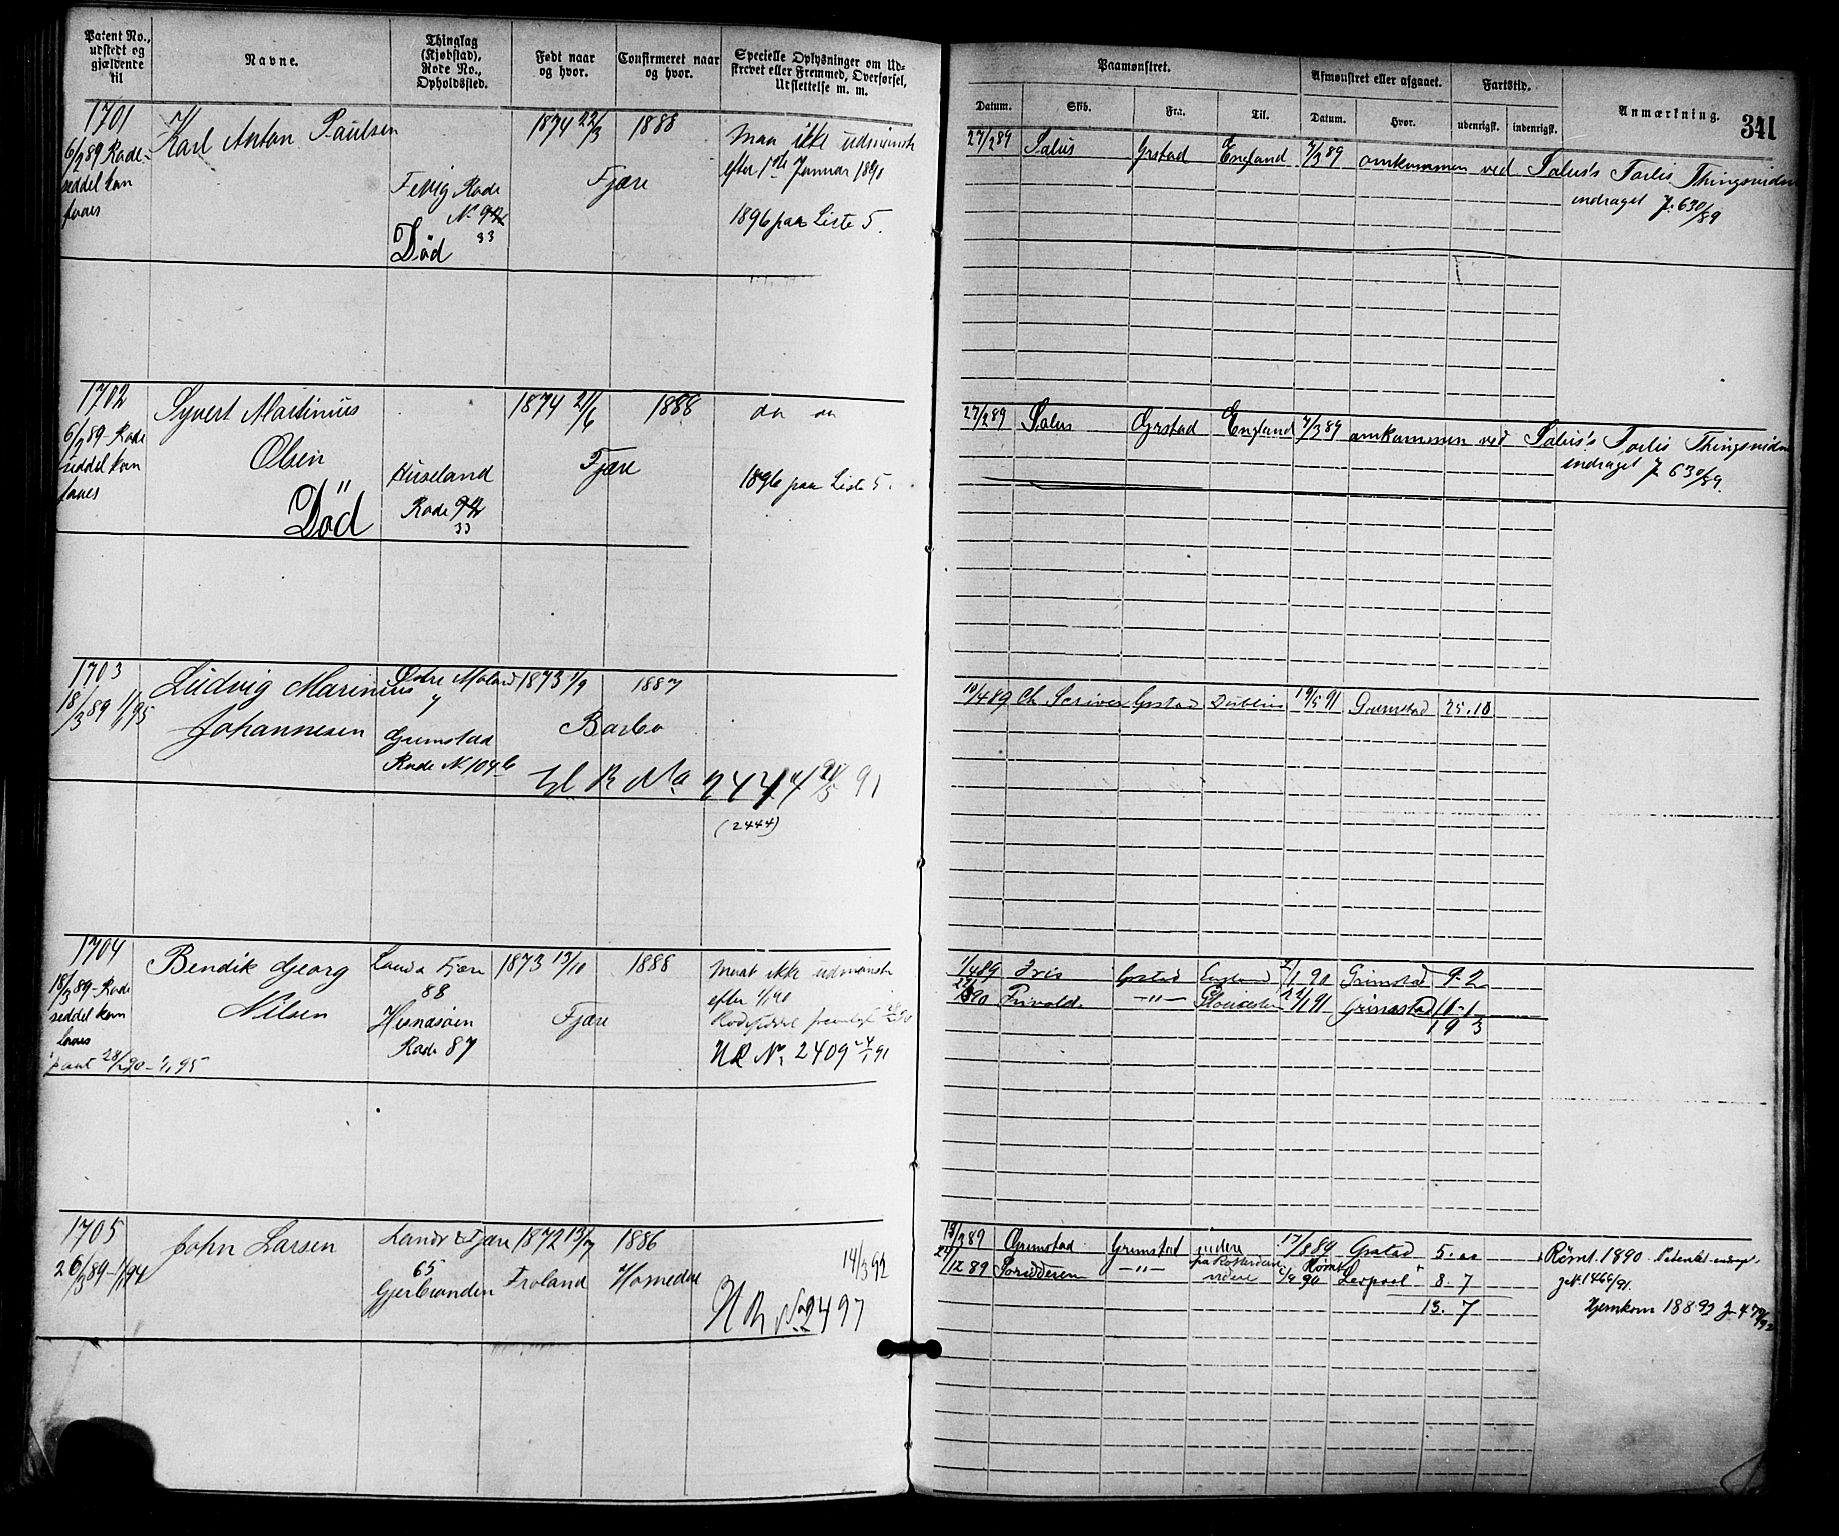 Patent No., udstedt og gjældende til
Navne.
Thinglag (Kjøbstad), Rode No., Opholdssted.
Født naar og hvor.
Confirmeret naar og hvor.
Specielle Oplysninger om Udskrevet eller Fremmed, Overførsel, Udslettelse m. m.
Paamønstret.
Datum.
Skib.
Fra.
Til.
Afmønstret eller afgaaet.
Datum.
Hvor.
Fartstid.
udenrigsk.
indenrigsk.
Anmærkning.
341
1701
6/2 89 Rode-
seddel kan
faaes
Karl Anton Paulsen
Fevig Rode
No
33
Død
1874 22/3
Fjære
1888
Maa ikke udmønstr
efter 1ste Januar 1891
1896 paa Liste 5.
27/2 89 Salus Grstad England 7/3 89 omkommen ved Salus's Forlis Thingsvidn
inddraget J. 630/89
1702
6/2 89 - Rode
seddel kan
faaes
Syvert Martinius
Olsen
Død
Huseland
Rode
33
1874 21/6
Fjære
1888
do do
1896 paa Liste 5.
27/2 89 Salus Grstad England 7/3 89 omkommen ved Salus's Forlis Thingsvidn
inddraget J. 630/89.
1703
18/3 89 1/1 95
Ludvig Marinius
Johannesen
Østre Moland
7
Grimstad
Rode No 104 b
1873 1/9
Barbo
1887
No 2444 21/5 91
(2444)
10/4 89 Ch Scriver Grstad Dublin 19/5 91 Grimstad 25.10
1704
18/3 89 - Rode
seddel kan
faaes
pant 28/ 90 - 1/1 95
Bendik Georg
Nilsen
Landv Fjære
88
Hesnæsøen
Rode 87
1873 13/10
Fjære
1888
Maat ikke udmønstr
efter 1/1 90
HR No 2409 24/1 91
1/4 89 Iris Grstad England 2/1 90 Grimstad 9-2
90 Frivold. -"- Gloucester 22/1 91 Grimstad 10-1
19 3
1705
26/3 89 - 1/1 94
John Larsen
Landv & Fjære
65
Gjerbranden
1872 13/7
Froland
1886
Homedal
14/3 92
HR No 2497
89 Grimstad Grimstad videre 17/8 89 Grstad 5.
/12 89 -"- paa Rotterdam
videre 90 Rømt Lerpool 8. 7
13. 7
Rømt. 1890. Patentet inddrgt.
J. 1466/91.
Hjemkom 1892 J. 479/92